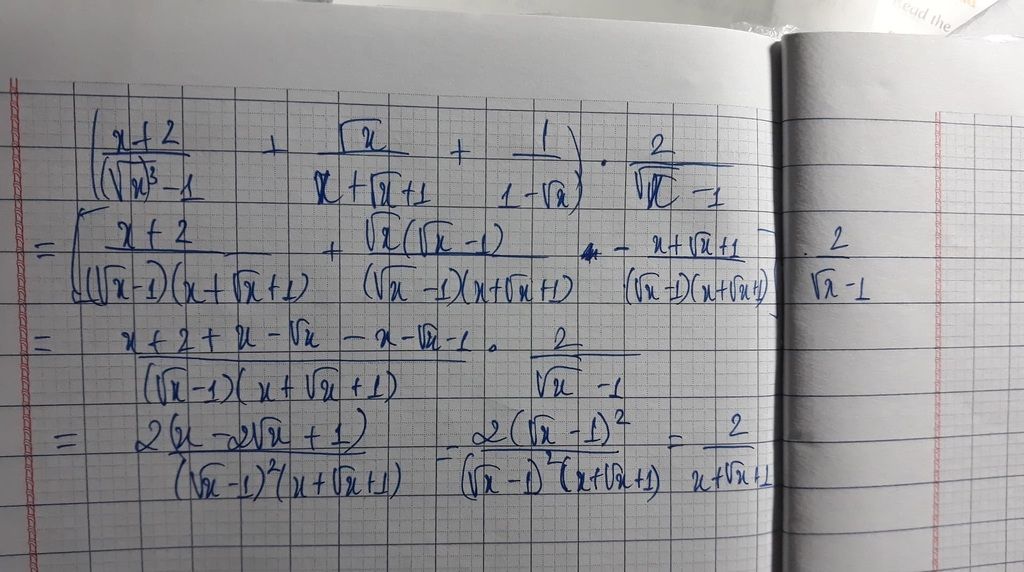 Read the
( (x+2)/((√x)³-1) + √x/(x+√x+1) + 1/(1-√x) ) . 2/(√x -1)
= [ (x+2)/((√x-1)(x+√x+1)) + √x(√x-1)/((√x-1)(x+√x+1)) - (x+√x+1)/((√x-1)(x+√x+1)) ] . 2/(√x-1)
= (x+2+x-√x-x-√x-1)/((√x-1)(x+√x+1)) . 2/(√x-1)
= 2(x-2√x+1)/((√x-1)²(x+√x+1)) = 2(√x-1)²/((√x-1)²(x+√x+1)) = 2/(x+√x+1)